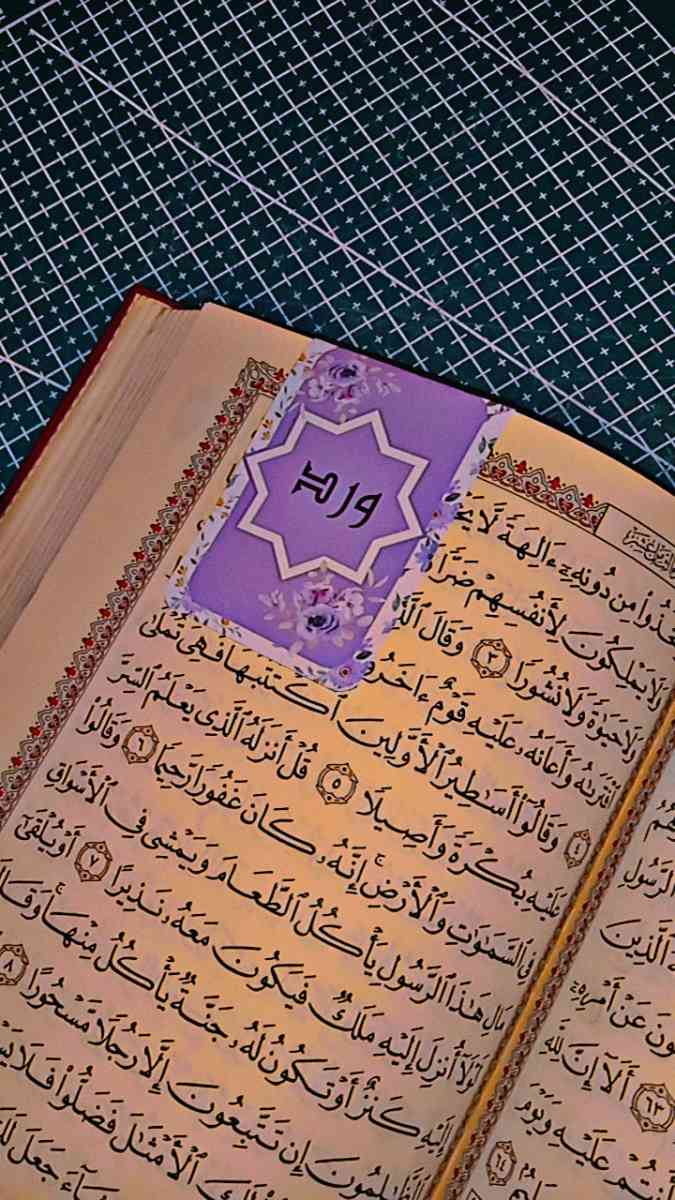 ورد
مِن دُونِهِۦٓ ءَالِهَةً لَّا
وَلَا يَمْلِكُونَ لِأَنفُسِهِمْ ضَرًّا
وَلَا حَيَوٰةً وَلَا نُشُورًا ٣ وَقَالَ
ٱفْتَرَىٰهُ وَأَعَانَهُۥ عَلَيْهِ قَوْمٌ
٤ وَقَالُوٓا۟ أَسَٰطِيرُ ٱلْأَوَّلِينَ ٱكْتَتَبَهَا فَهِىَ تُمْلَىٰ
عَلَيْهِ بُكْرَةً وَأَصِيلًا ٥ قُلْ أَنزَلَهُ ٱلَّذِى يَعْلَمُ ٱلسِّرَّ
فِى ٱلسَّمَٰوَٰتِ وَٱلْأَرْضِ إِنَّهُۥ كَانَ غَفُورًا رَّحِيمًا ٦ وَقَالُوا۟
مَالِ هَٰذَا ٱلرَّسُولِ يَأْكُلُ ٱلطَّعَامَ وَيَمْشِى فِى ٱلْأَسْوَاقِ
لَوْلَآ أُنزِلَ إِلَيْهِ مَلَكٌ فَيَكُونَ مَعَهُۥ نَذِيرًا ٧ أَوْ يُلْقَىٰٓ
إِلَيْهِ كَنزٌ أَوْ تَكُونُ لَهُۥ جَنَّةٌ يَأْكُلُ مِنْهَا وَقَالَ
ٱلظَّٰلِمُونَ إِن تَتَّبِعُونَ إِلَّا رَجُلًا مَّسْحُورًا ٨
ٱلْأَمْثَٰلَ فَضَلُّوا۟ فَلَا
جَعَلَ
ٱلرَّسُولِ
ٱلَّذِينَ
عَنْ أَمْرِهِۦٓ
أَلَآ إِنَّ لِلَّهِ
٦٣
عَلَيْهِ وَيَوْمَ
٦٤